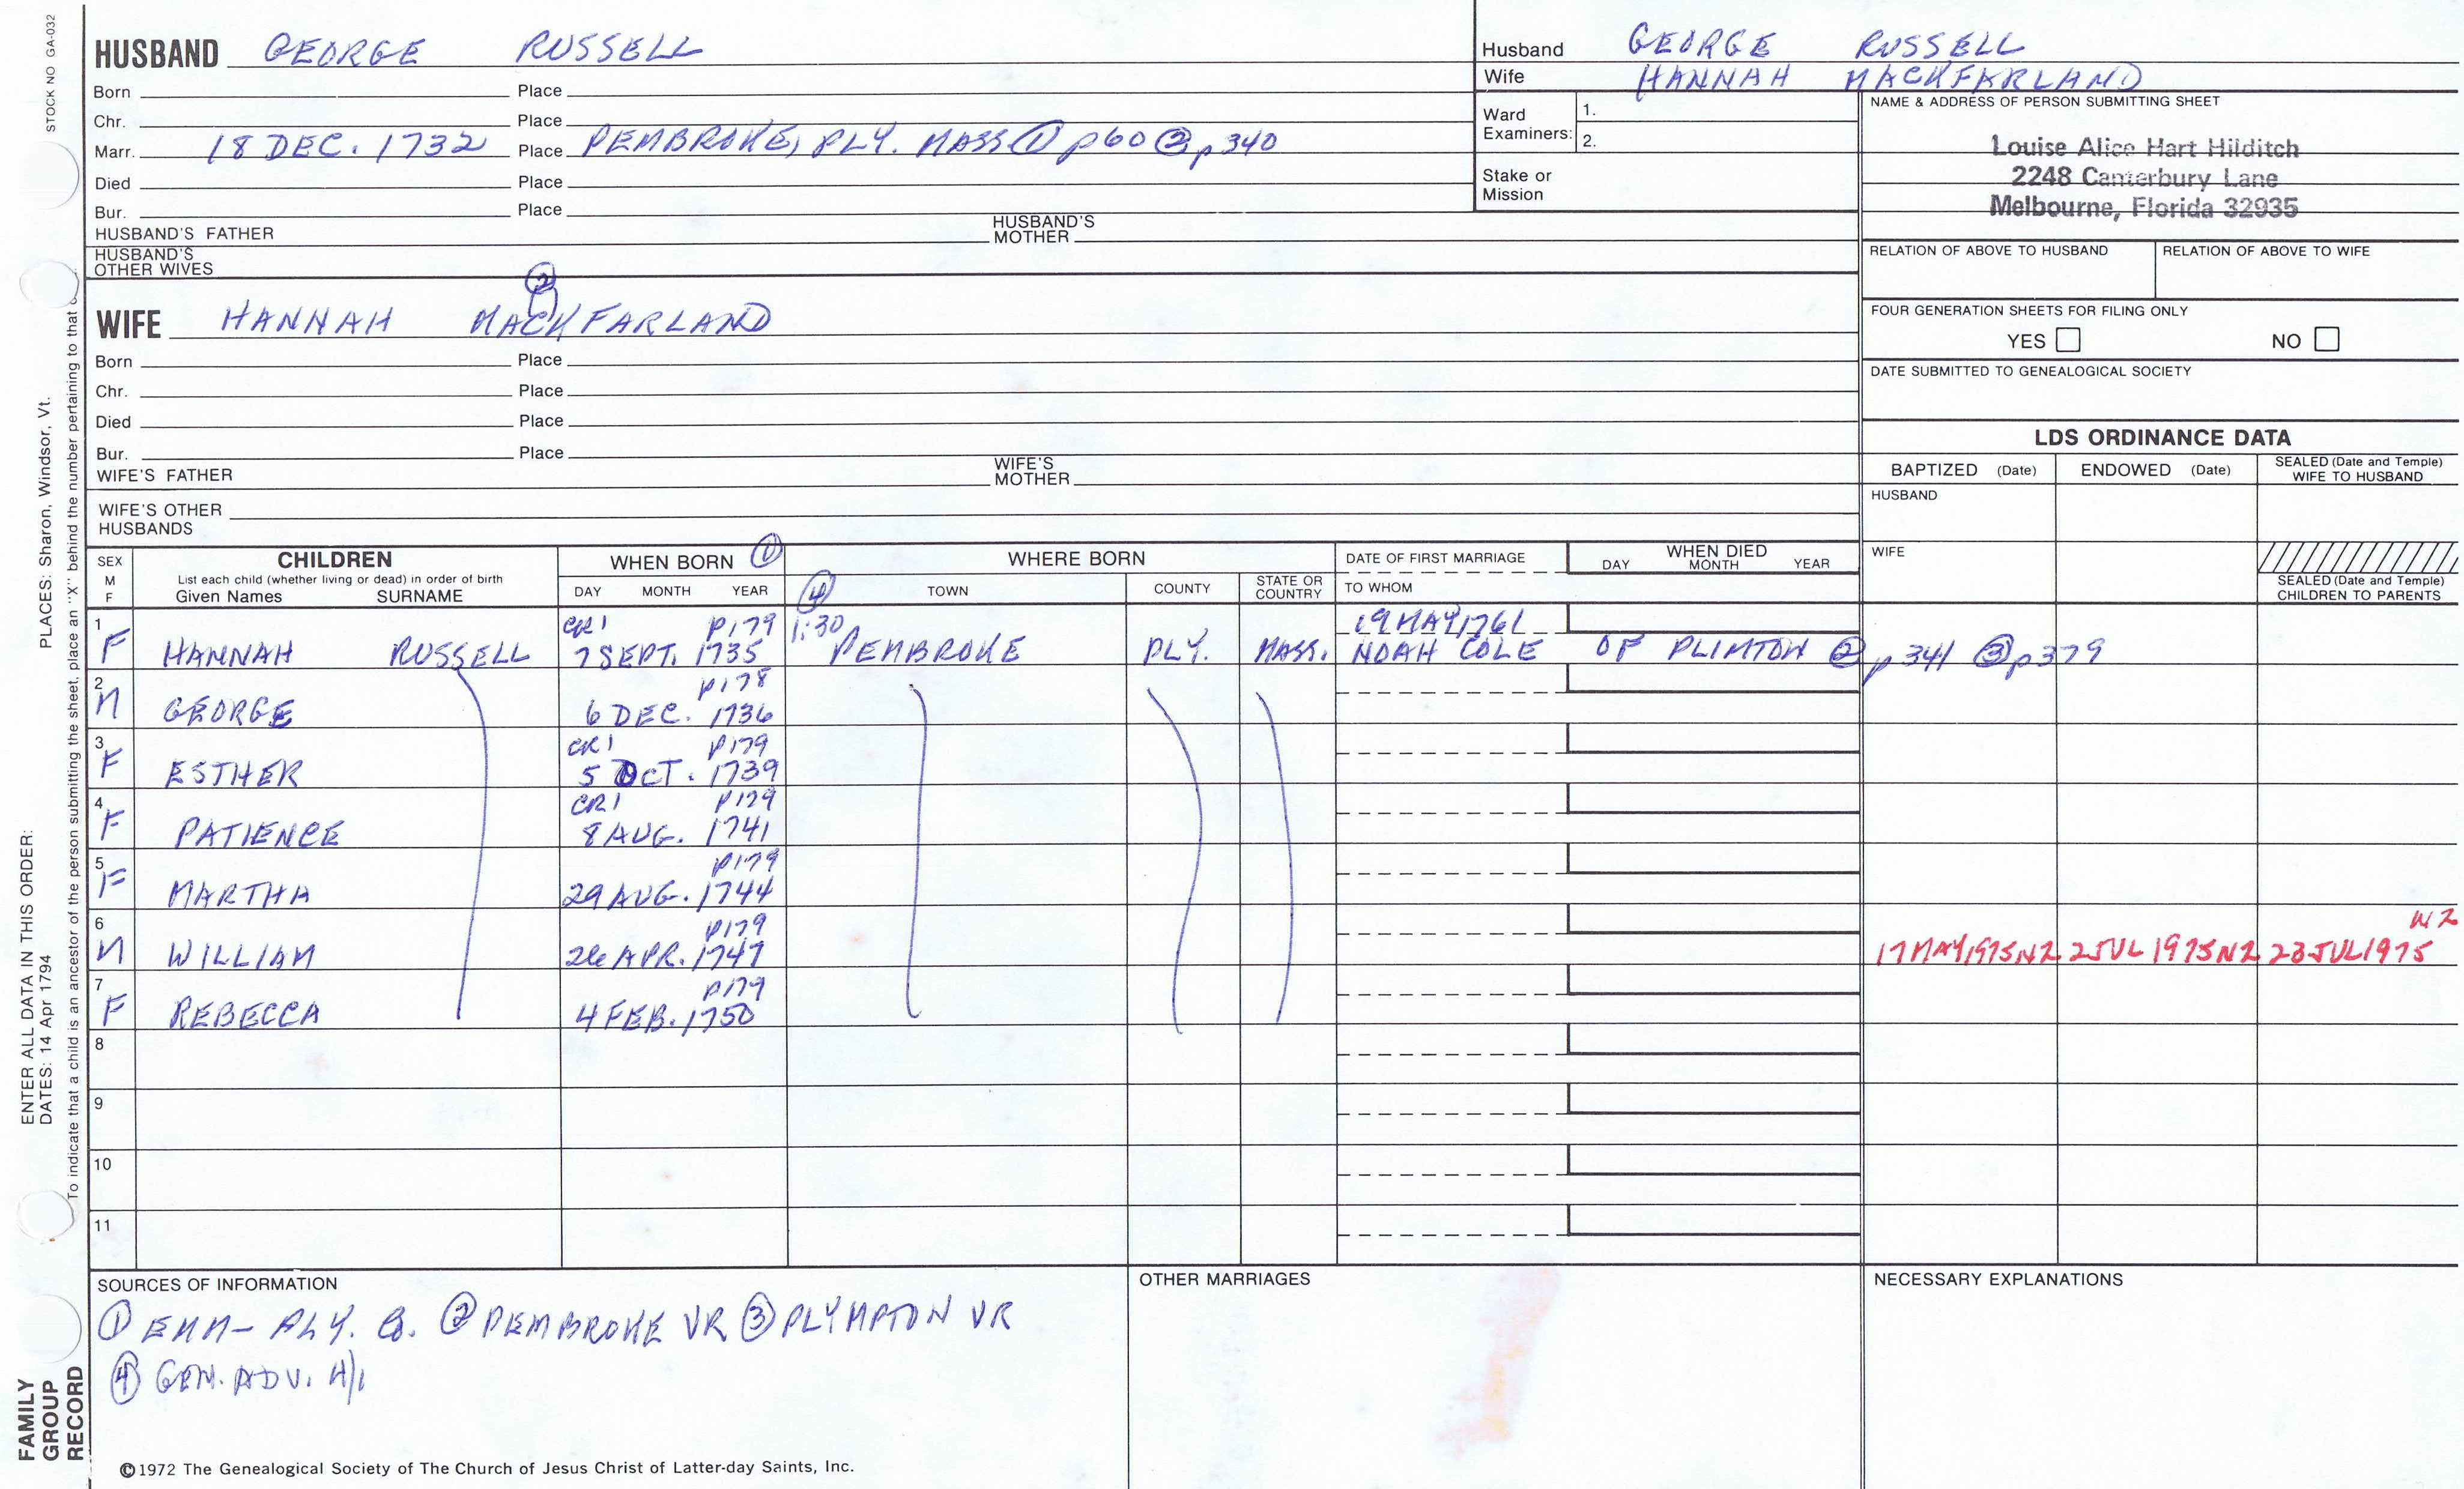 STOCK NO GA-032
HUSBAND GEORGE RUSSELL
Born Place
Chr. Place
Marr. 18 DEC. 1732 Place PEMBROKE, PLY. MASS ① p60 ② p340
Died Place
Bur. Place
HUSBAND'S FATHER HUSBAND'S MOTHER
HUSBAND'S OTHER WIVES
②
WIFE HANNAH MACKFARLAND
Born Place
Chr. Place
Died Place
Bur. Place
WIFE'S FATHER WIFE'S MOTHER
WIFE'S OTHER HUSBANDS
Husband GEORGE RUSSELL
Wife HANNAH MACKFARLAND
Ward Examiners: 1.
2.
Stake or Mission
NAME & ADDRESS OF PERSON SUBMITTING SHEET
Louise Alice Hart Hilditch
2248 Canterbury Lane
Melbourne, Florida 32935
RELATION OF ABOVE TO HUSBAND RELATION OF ABOVE TO WIFE
FOUR GENERATION SHEETS FOR FILING ONLY
YES NO
DATE SUBMITTED TO GENEALOGICAL SOCIETY
LDS ORDINANCE DATA
BAPTIZED (Date) ENDOWED (Date) SEALED (Date and Temple) WIFE TO HUSBAND
HUSBAND
WIFE
SEALED (Date and Temple) CHILDREN TO PARENTS
SEX M F
CHILDREN
List each child (whether living or dead) in order of birth
Given Names SURNAME
WHEN BORN ①
DAY MONTH YEAR
WHERE BORN
④ TOWN COUNTY STATE OR COUNTRY
DATE OF FIRST MARRIAGE
TO WHOM
WHEN DIED
DAY MONTH YEAR
1 CR1 P179 1:30 19 MAY 1761
F HANNAH RUSSELL 7 SEPT. 1735 PEMBROKE PLY. MASS. NOAH COLE OF PLIMTON ② p341 ③ p379
2 P178
M GEORGE 6 DEC. 1736
3 CR1 P179
F ESTHER 5 OCT. 1739
4 CR1 P179
F PATIENCE 8 AUG. 1741
5 P179
F MARTHA 29 AUG. 1744
6 P179 NZ
M WILLIAM 26 APR. 1747 17 MAY 1975 NZ 2 JUL 1975 NZ 23 JUL 1975
7 P179
F REBECCA 4 FEB. 1750
8
9
10
11
SOURCES OF INFORMATION
① EMM- PLY. Co. ② PEMBROKE VR ③ PLYMPTON VR
④ GEN. ADV. 4/1
OTHER MARRIAGES
NECESSARY EXPLANATIONS
©1972 The Genealogical Society of The Church of Jesus Christ of Latter-day Saints, Inc.
ENTER ALL DATA IN THIS ORDER:
DATES: 14 Apr 1794 PLACES: Sharon, Windsor, Vt.
To indicate that a child is an ancestor of the person submitting the sheet, place an "X" behind the number pertaining to that
FAMILY
GROUP
RECORD